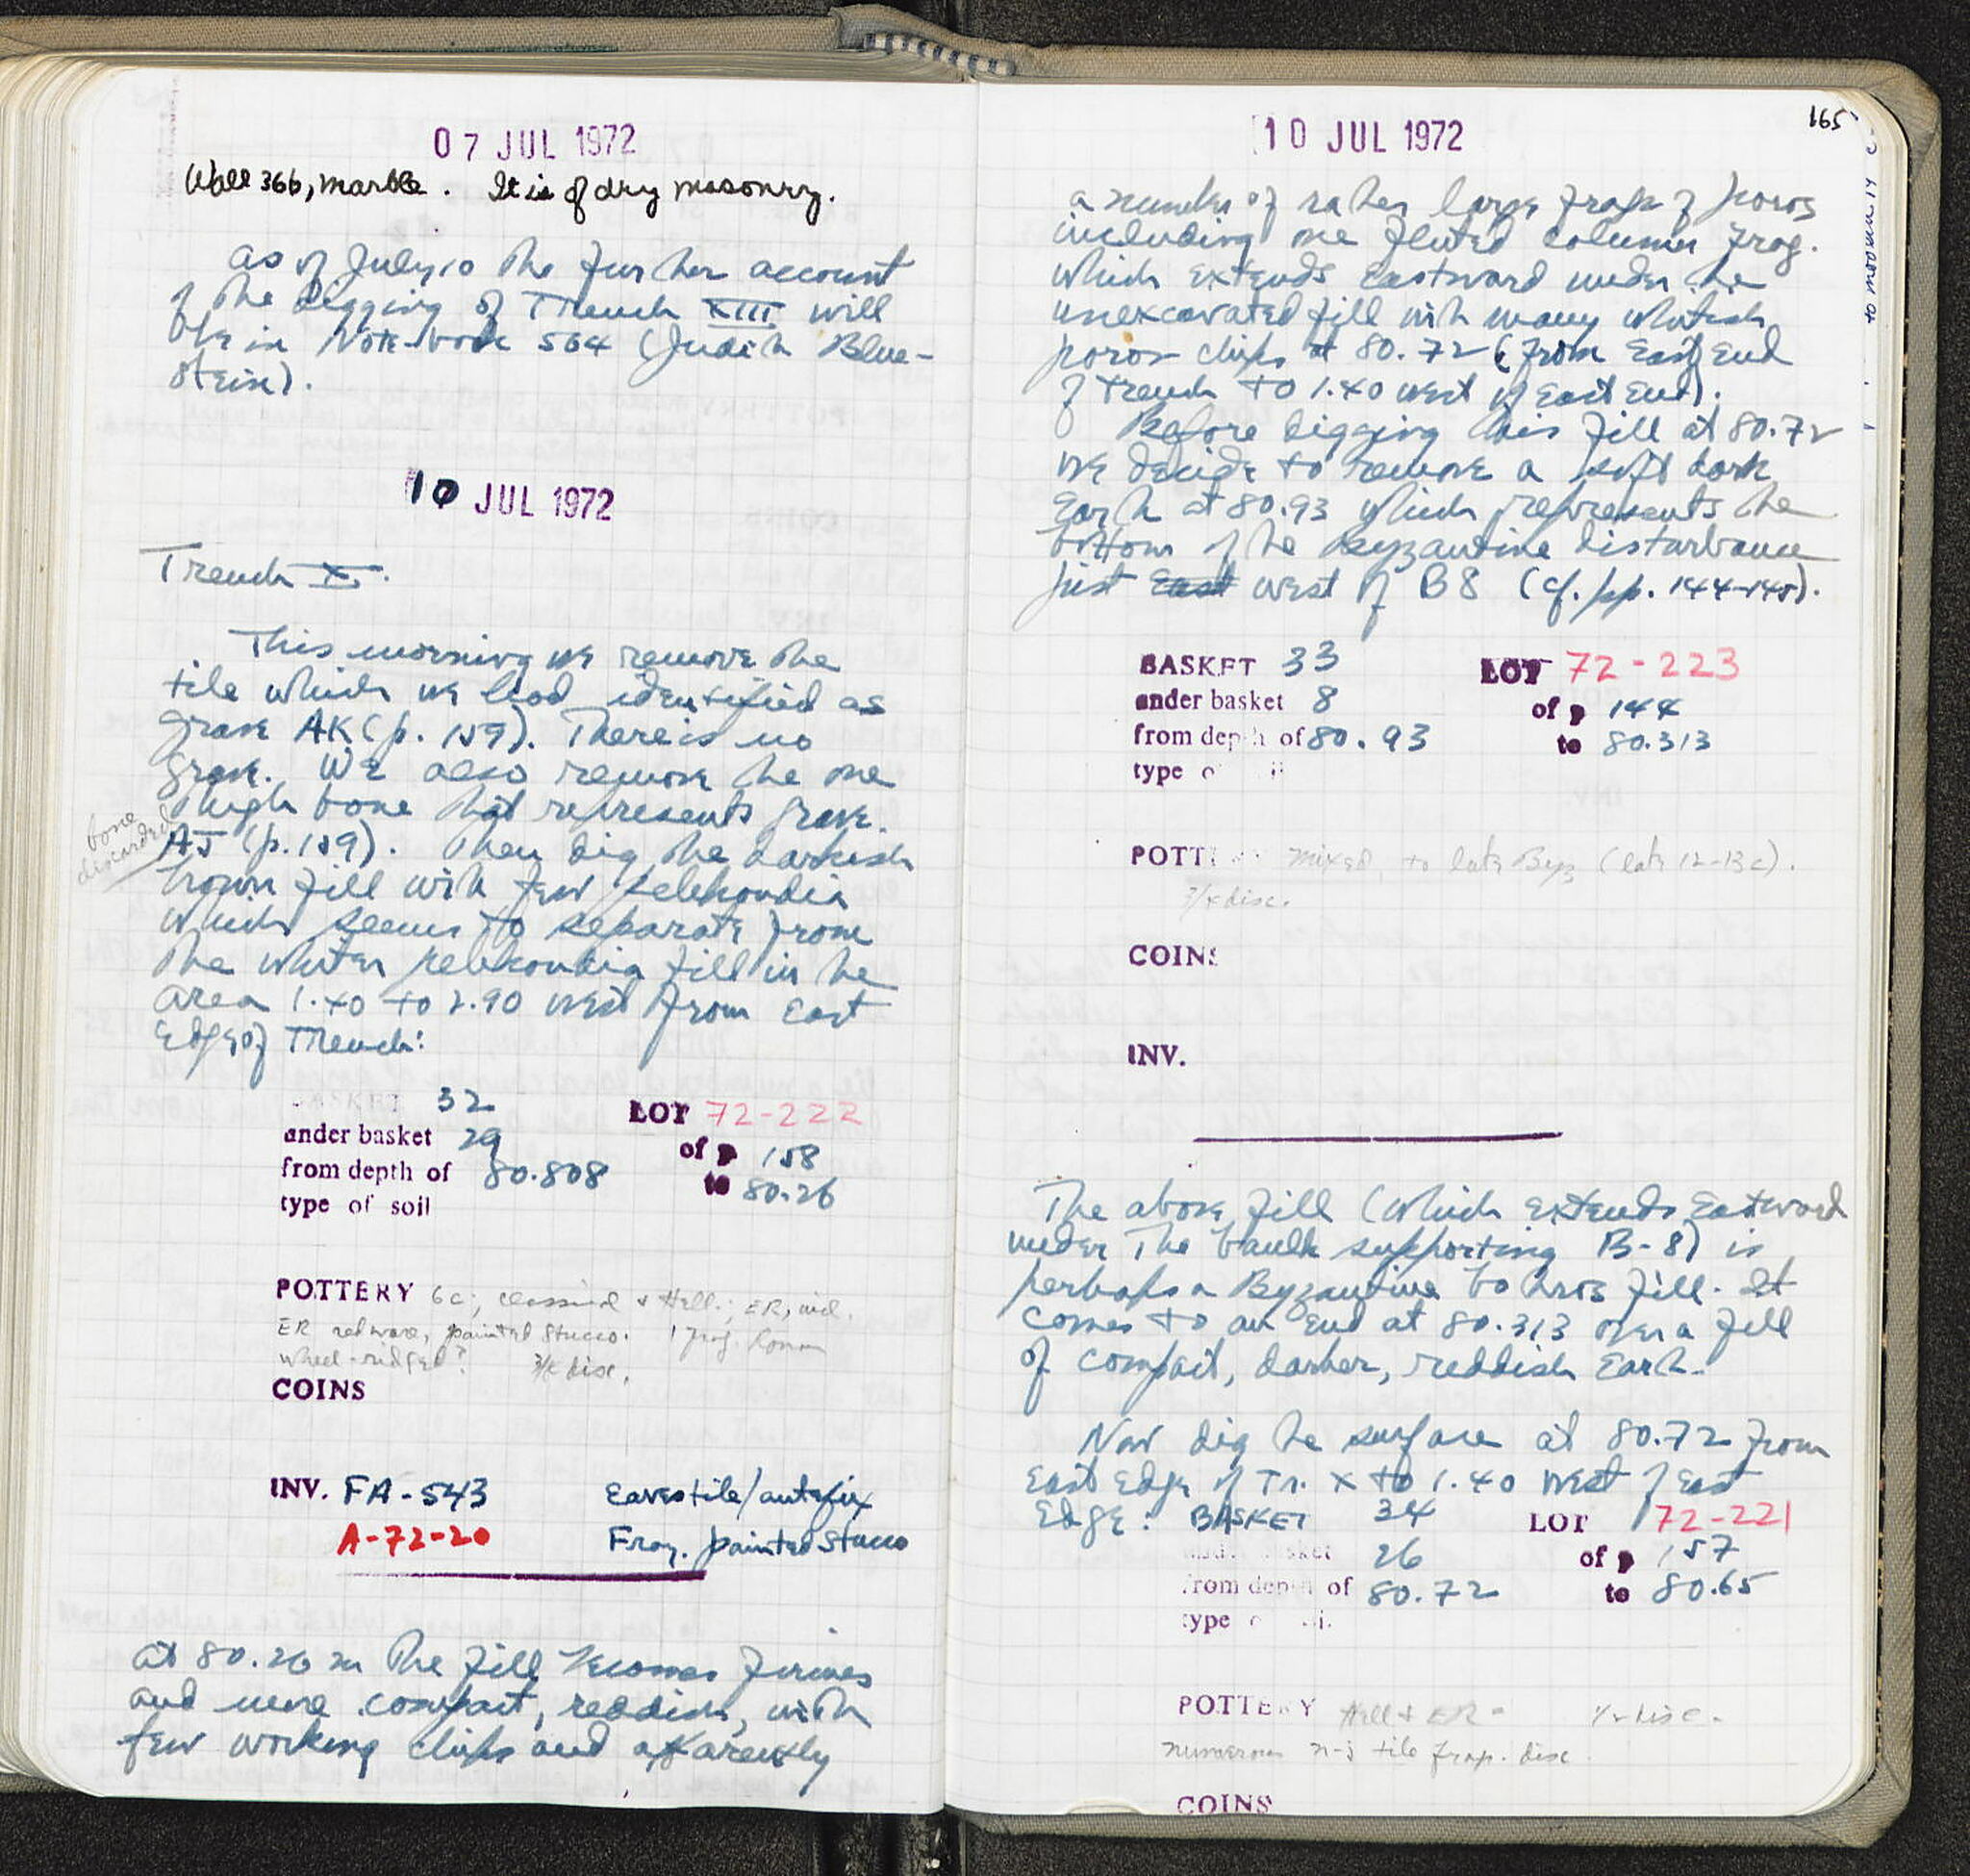 07 JUL 1972
Wall 36b, marble. It is of dry masonry.
As of July 10 the further account
of the digging of Trench XIII will
be in Note-book 564 (Judith Blue-
stein).
10 JUL 1972
Trench X.
This morning we remove the
tile which we had identified as
grave AK (p. 159). There is no
grave. We also remove the one
thigh bone that represents grave
AJ (p. 159). Then dig the darkish
bone
discarded
brown fill with few pelekoudia
which seems to separate from
the whiter pelekoudia fill in the
area 1.40 to 2.90 west from East
Edge of Trench:
BASKET 32 LOT 72-222
under basket 29 of p 158
from depth of 80.808 to 80.26
type of soil
POTTERY 6c; classical & Hell.; ER, incl.
ER redware, painted stucco. 1 frag. Roman
wheel-ridged? disc.
COINS
INV. FA-543 Eavestile/antefix
A-72-20 Frag. painted stucco
at 80.26 m the fill becomes firmer
and more compact, reddish, with
few working chips and apparently
165
10 JUL 1972
a number of rather large frags of poros
including one fluted column frag.
which extends Eastward under the
unexcavated fill with many whitish
poros chips at 80.72 (from East End
of Trench to 1.40 west of East End).
Before digging this fill at 80.72
we decide to remove a soft dark
Earth at 80.93 which represents the
bottom of the Byzantine disturbance
just East west of B8 (cf. pp. 144-145).
BASKET 33 LOT 72-223
under basket 8 of p 144
from depth of 80.93 to 80.313
type of soil
POTTERY mixed, to late Byz (late 12-13c).
disc.
COINS
INV.
The above fill (which extends Eastward
under the baulk supporting B-8) is
perhaps a Byzantine bothros fill. It
comes to an End at 80.313 over a fill
of compact, darker, reddish Earth.
Now dig the surface at 80.72 from
East Edge of Tr. X to 1.40 west of East
Edge: BASKET 34 LOT 72-221
under basket 26 of p 157
from depth of 80.72 to 80.65
type of soil
POTTERY Hell & ER - 1/2 disc.
numerous n-j tile frag. disc.
COINS